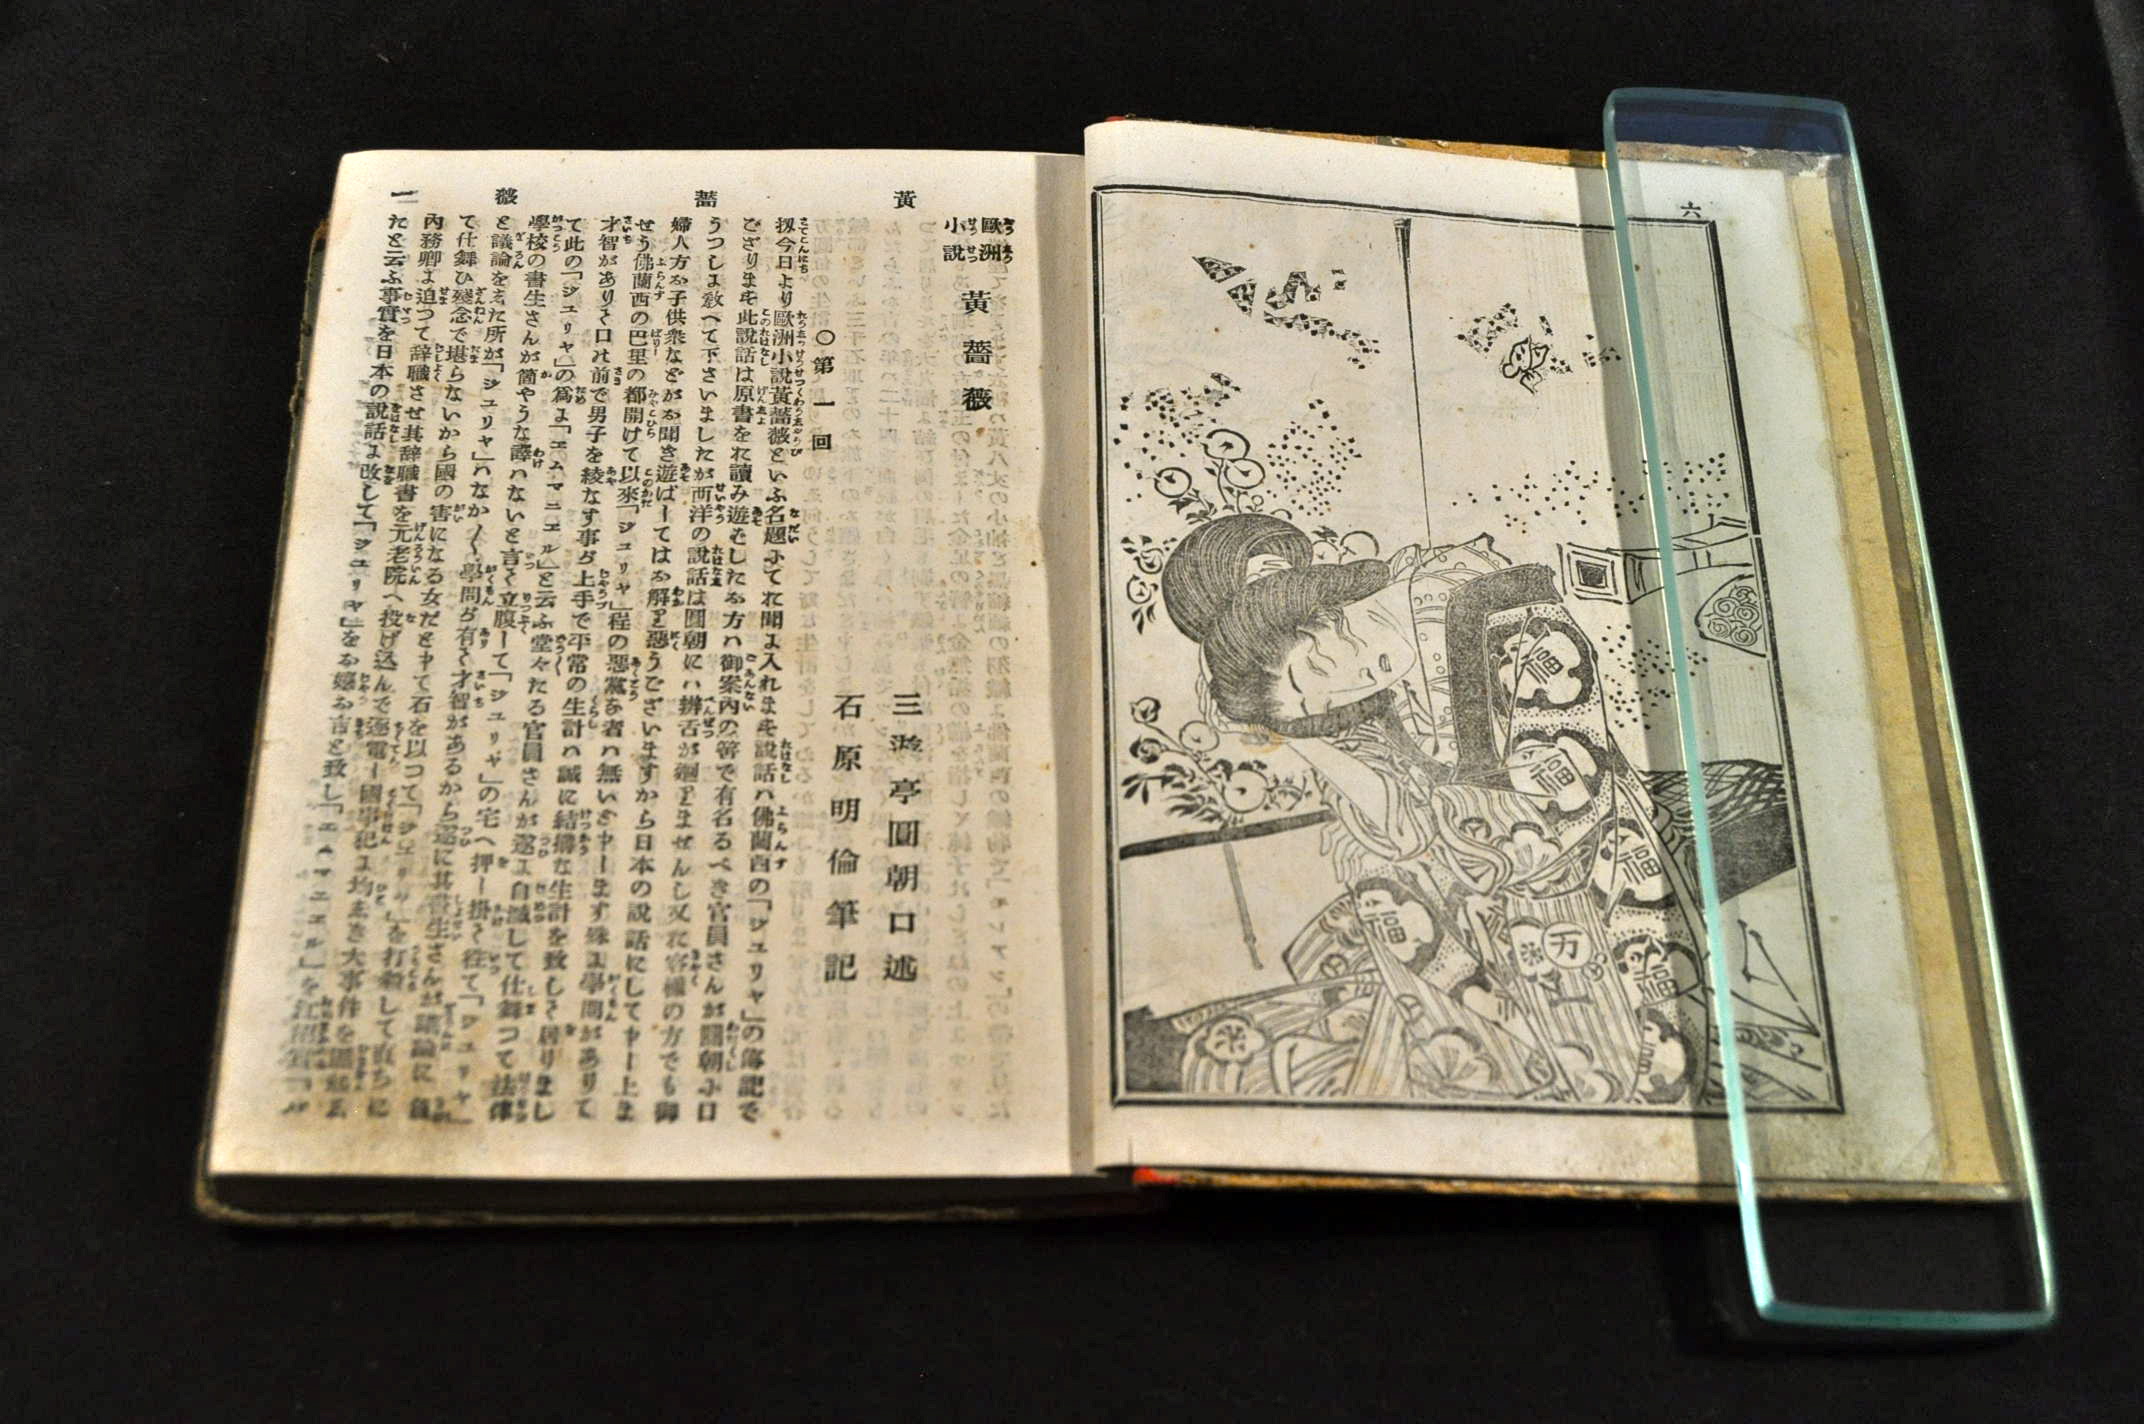 六
黃薔薇
一
歐洲小說 黃薔薇
三遊亭圓朝口述
石原明倫筆記
○第一回
扨今日より歐洲小說黃薔薇といふ名題にてお聞に入れます說話ハ佛蘭西の「ジユリヤ」の傳記で
ござります此說話は原書をお讀み遊ばしたお方ハ御案內の筈で有名るべき官員さんが圓朝に口
うつしに敎へて下さいましたが西洋の說話は圓朝にハ辨舌が廻りませんし又お客樣の方でも御
婦人方お子供衆などがお聞き遊ばしてはお解り惡うございますから日本の說話にして申し上ま
せう佛蘭西の巴里の都開けて以來「ジユリヤ」程の惡黨な者ハ無いと申します殊に學問がありて
才智がありて口の前で男子を綾なす事が上手で平常の生計ハ誠に結搆な生計を致して居りまし
て此の「ジユリヤ」の爲に「エムマニエル」と云ふ堂々たる官員さんが遂に自滅して仕舞つて法律
學校の書生さんが箇やうな譯ハないと言て立腹して「ジユリヤ」の宅へ押し掛て往て「ジユリヤ」
と議論をした所が「ジユリヤ」ハなか〱學問が有て才智があるから遂に其書生さんが議論に負
て仕舞ひ殘念で堪らないから國の害になる女だとて石を以つて「ジユリヤ」を打殺して直ちに
內務卿に迫つて辞職させ其辞職書を元老院へ投げ込んで逐電し國事犯に均しき大事件を
たと云ふ事實を日本の說話に改して「ジユリヤ」をお嬉お吉と致し「エムマニエル」を
福
福
福
福
万
福